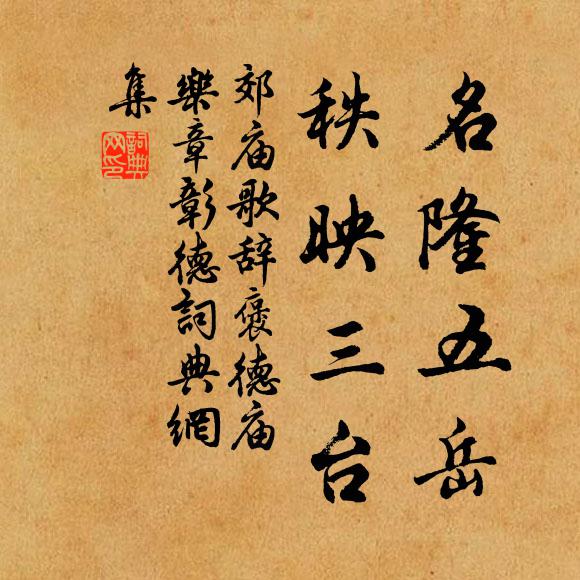 名隆五岳
秩映三台
郊庙歌辞褒德庙
樂章彰德詞典網
集
詞典网印